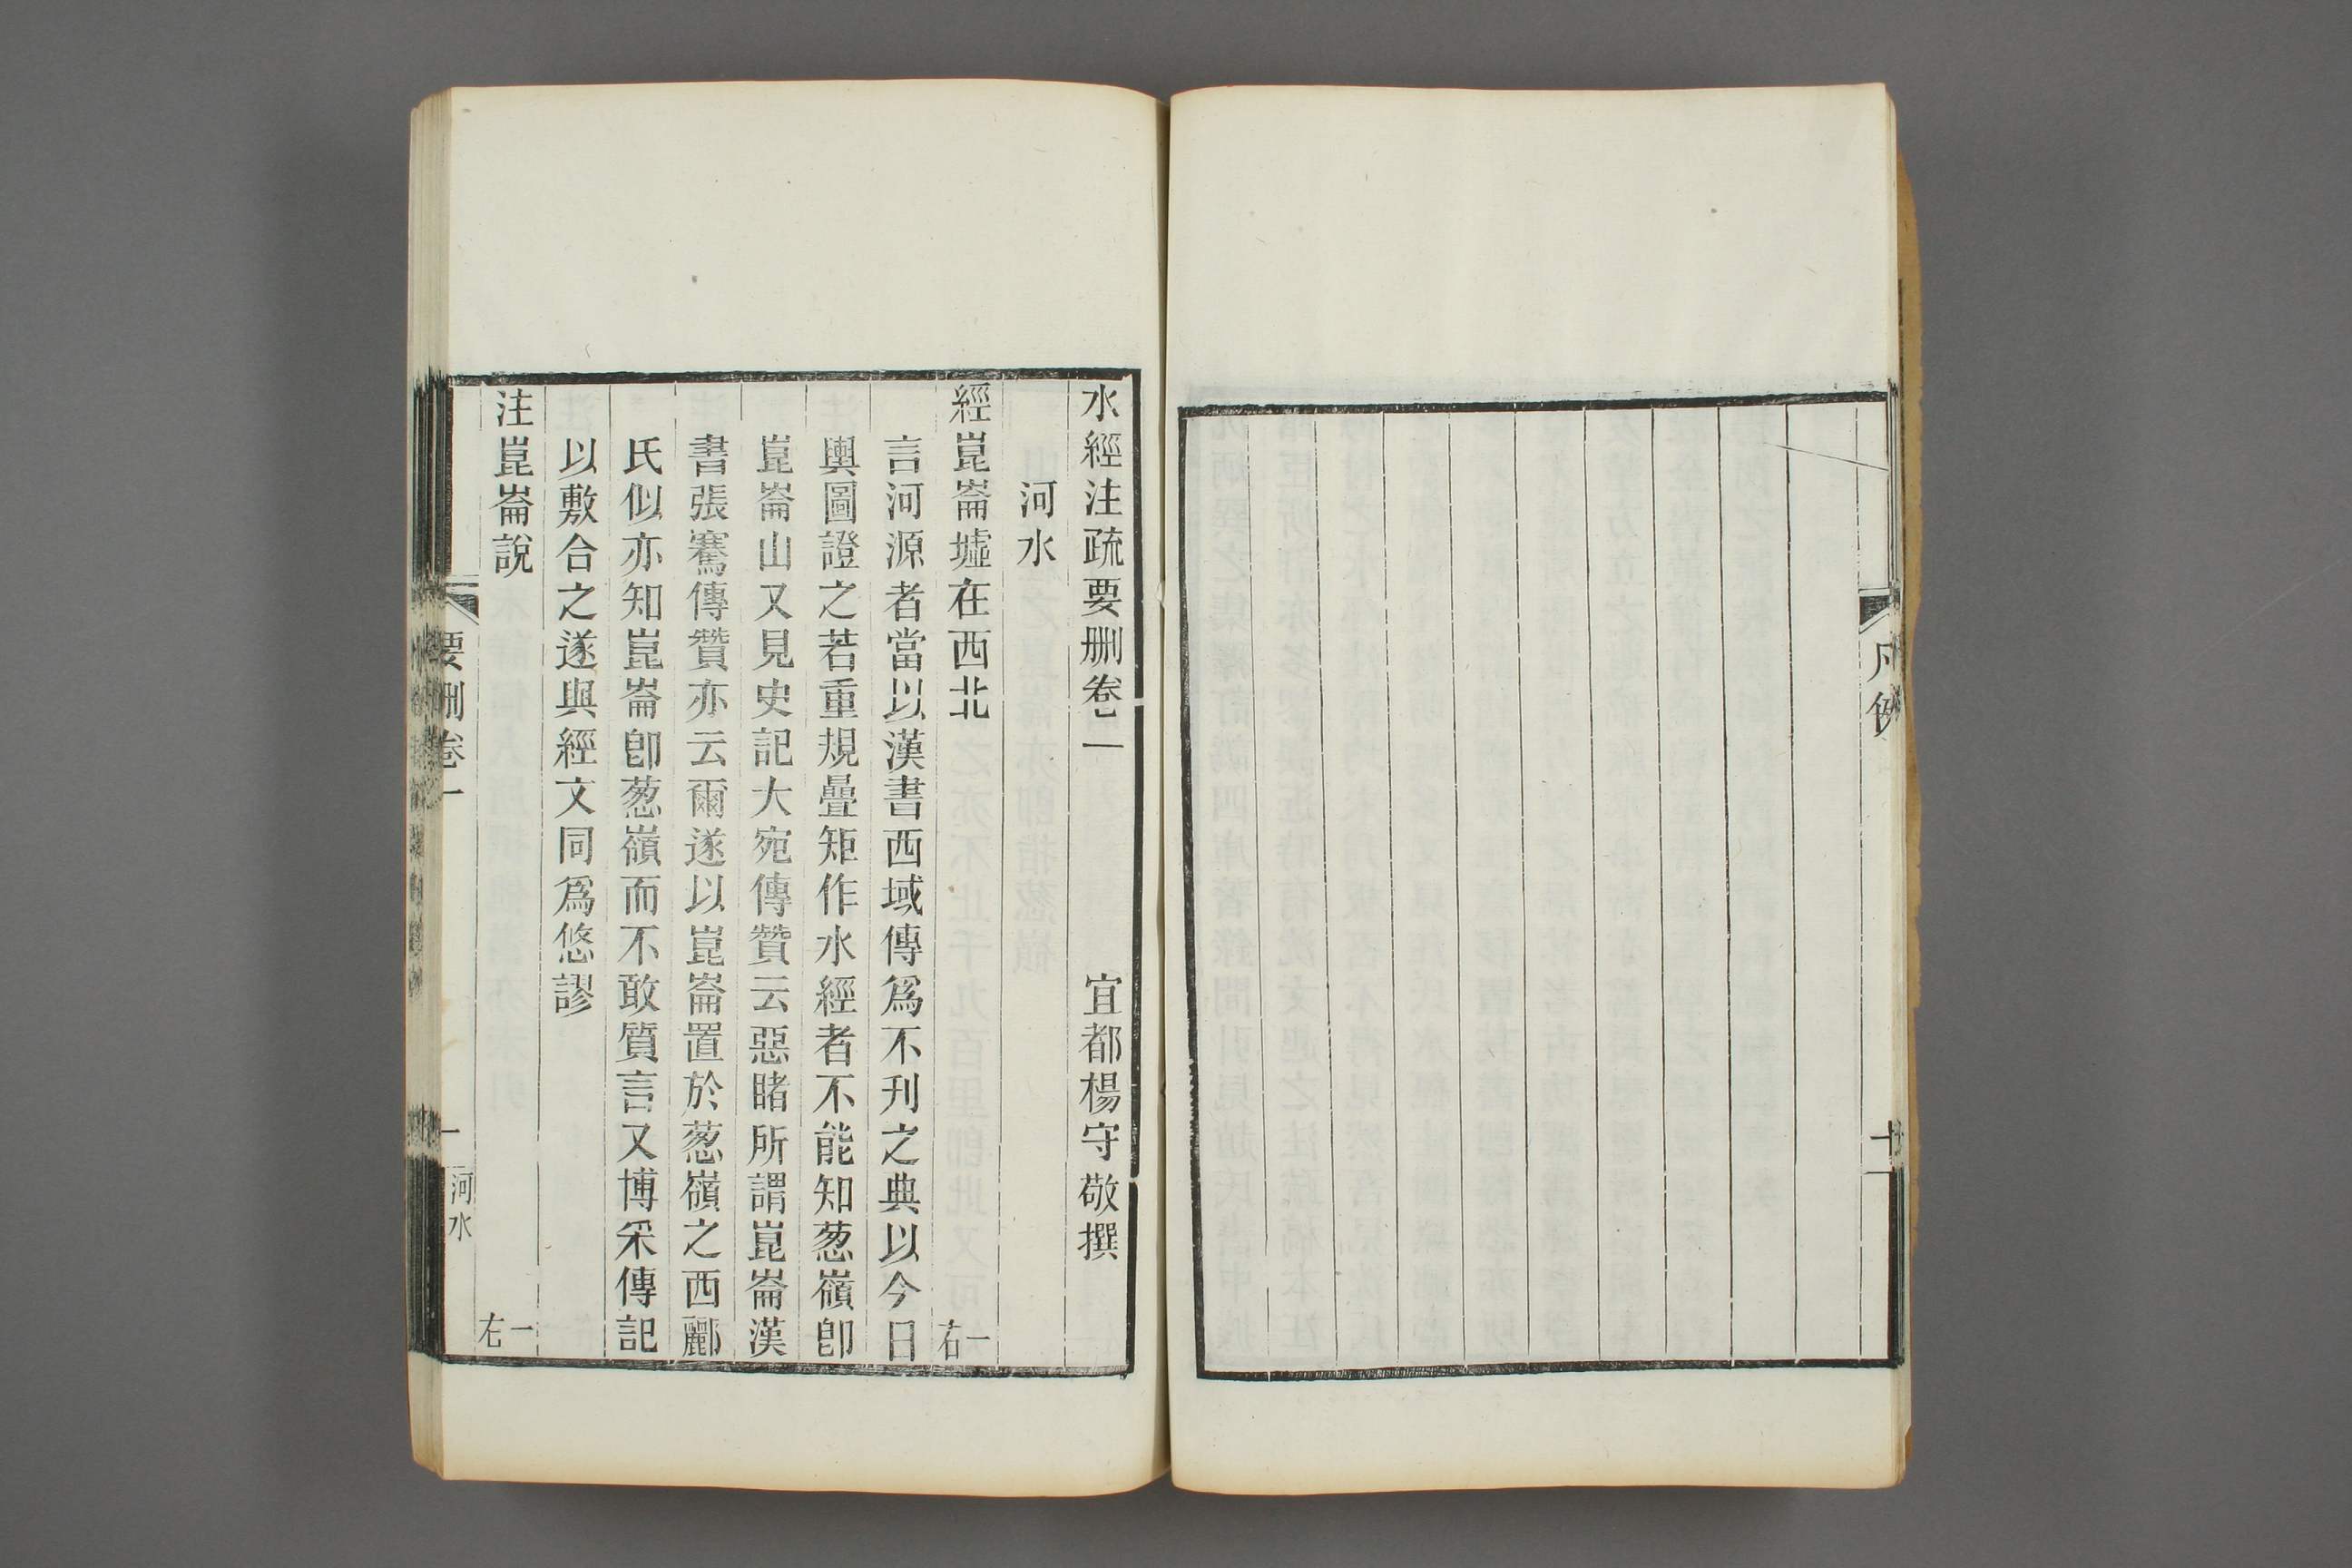 凡例
十一
水經注疏要删卷一 宜都楊守敬撰
河水
經崑崙墟在西北 一右
言河源者當以漢書西域傳爲不刋之典以今日
輿圖證之若重規疊矩作水經者不能知葱嶺卽
崑崙山又見史記大宛傳贊云惡睹所謂崑崙漢
書張騫傳贊亦云爾遂以崑崙置於葱嶺之西酈
氏似亦知崑崙卽葱嶺而不敢質言又博采傳記
以敷合之遂與經文同爲悠謬
注崑崙說 一右
要删卷一
一
河水